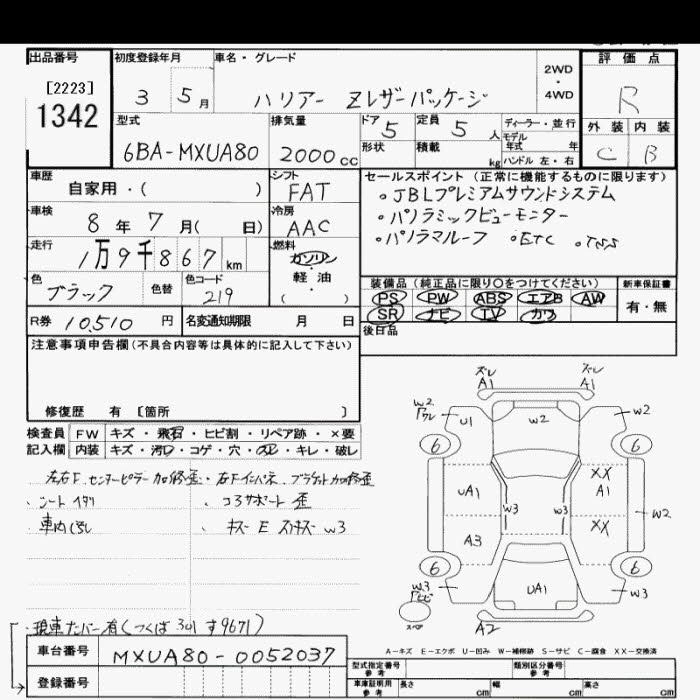 出品番号 初度登録年月 車名・グレード 評価点
[2223]
1342
3 5月 ハリアー Zレザーパッケージ 2WD・4WD R
型式 排気量 ドア 定員 ディーラー・並行 外装 内装
6BA-MXUA80 2000cc 5 5人 モデル年式 年 C B
形状 積載 kg ハンドル 左・右
車歴 シフト セールスポイント (正常に機能するものに限ります)
自家用・( ) FAT 。JBLプレミアムサウンドシステム
車検 冷房 。パノラミックビューモニター
8年7月( 日) AAC 。パノラマルーフ 。ETC
走行 燃料
1万9千867km ガソリン・軽油・( )
色 色替 色コード 装備品 (純正品に限り○をつけてください) 新車保証書
ブラック 219 PS PW ABS エアB AW 有・無
SR ナビ TV カワ
R券 10510円 名変通知期限 月 日 後日品
注意事項申告欄(不具合内容等は具体的に記入して下さい)
修復歴 有 [箇所 ]
検査員 FW キズ・飛石・ヒビ割・リペア跡・×要
記入欄 内装 キズ・汚レ・コゲ・穴・スレ・キレ・破レ
コアサポート 歪
W3
ズレ ズレ
A1 A1
W2 U1 W2 W2
6 6
UA1 XX A1
W3 W3 W2
A3 XX
6 6
W3 UA1 W3
スペア A2
A-キズ E-エクボ U-凹み W-補修跡 S-サビ C-腐食 XX-交換済
現車ナンバー有(つくば301す9671)
車台番号 MXUA80-0052037
登録番号
型式指定番号 参考 類別区分番号 参考
車庫証明用 参考 長さ cm 幅 cm 高さ cm